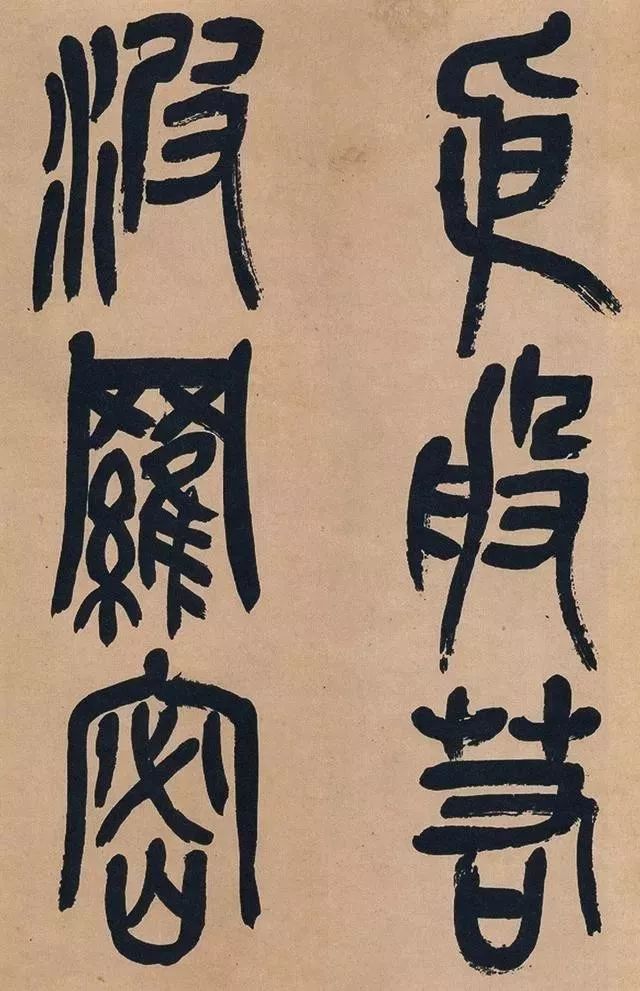 般若
波羅密